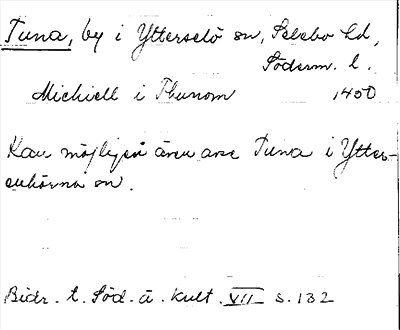 Tuna, by i Ytterselö sn, Selebo hd,
Söderm. l.
Michiell i Thunom 1450
Kan möjligen även avse Tuna i Ytter-
enhörna sn.
Bidr. t. Söd. ä. kult. VII s. 132